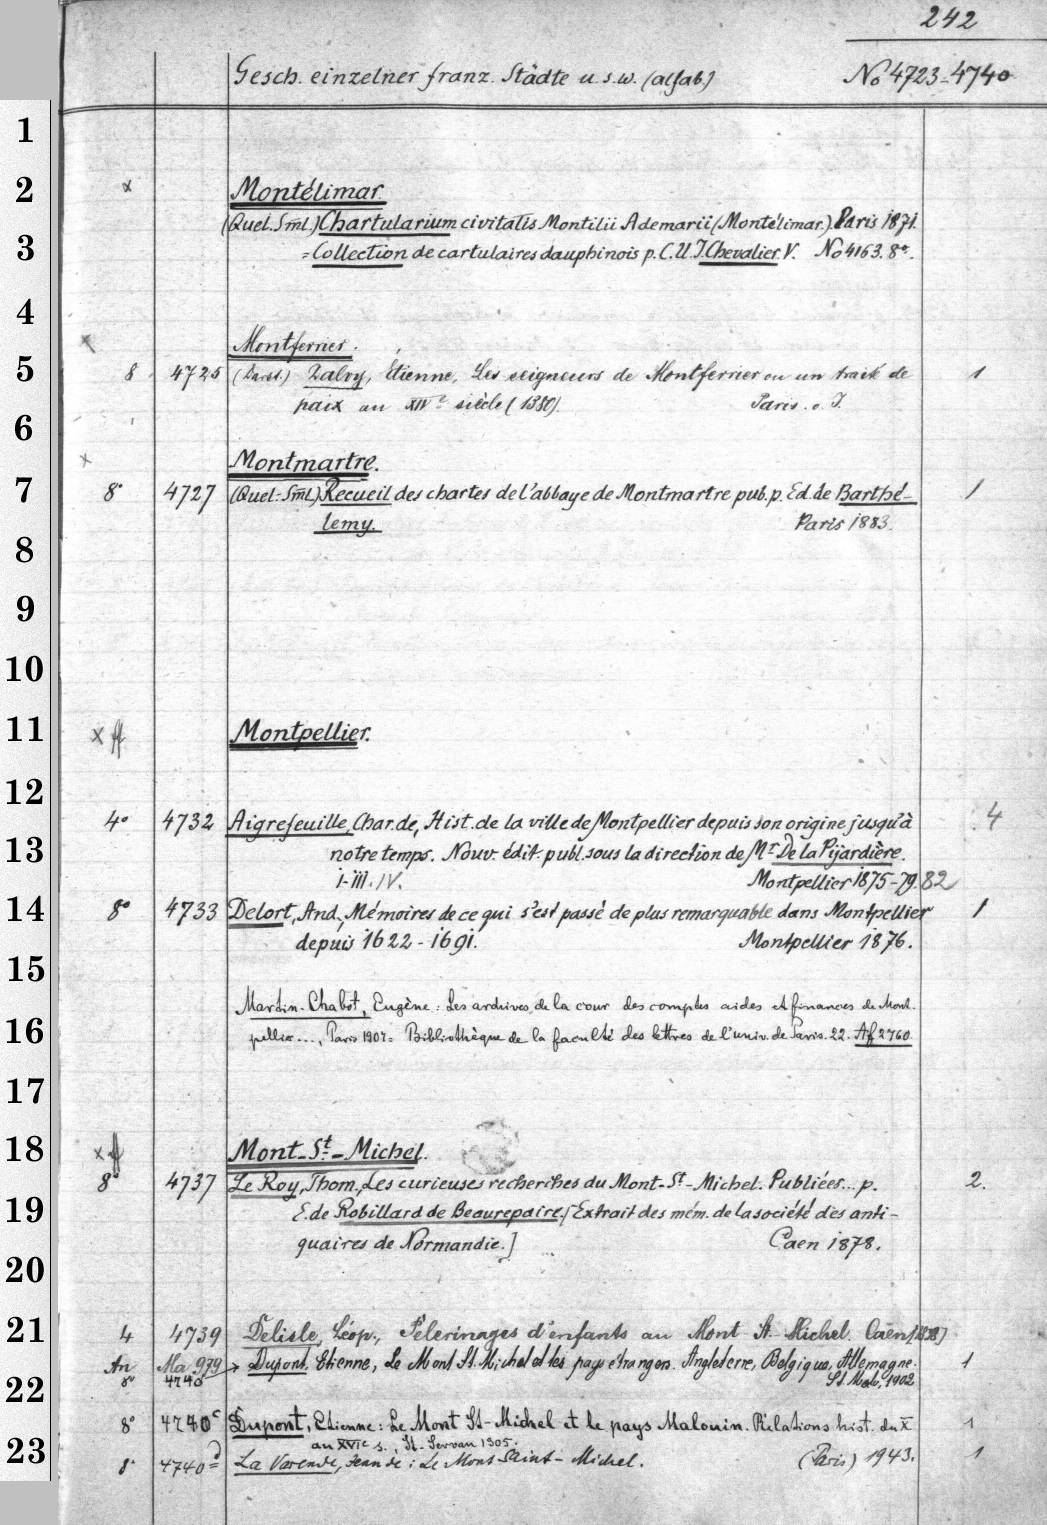 242
Gesch. einzelner franz. Städte u.s.w. (alfab.) No 4723-4740
1
2 x Montélimar.
(Quel. Sml.) Chartularium civitatis Montilii Ademarii (Montélimar). Paris 1871.
3 = Collection de cartulaires dauphinois p. C.U.J. Chevalier. V. No 4163. 8°.
4
x Montferrier.
5 8 4725 (Darst.) Daloy, Étienne, Les seigneurs de Montferrier ou un traité de 1
paix au XIVe siècle (1380). Paris. o. J.
6
x Montmartre.
7 8° 4727 (Quel.-Sml.) Recueil des chartes de l'abbaye de Montmartre pub. p. Ed. de Barthé- 1
lemy. Paris 1883.
8
9
10
11 x ff Montpellier.
12
4° 4732 Aigrefeuille, Char. de, Hist. de la ville de Montpellier depuis son origine jusqu'à 4
13 notre temps. Nouv. édit. publ. sous la direction de Mr De la Pijardière.
I-III. IV. Montpellier 1875-79. 82
14 8° 4733 Delort, And., Mémoires de ce qui s'est passé de plus remarquable dans Montpellier 1
depuis 1622-1691. Montpellier 1876.
15
Martin-Chabot, Eugène: Les archives de la cour des comptes aides et finances de Mont-
16 pellier..., Paris 1907 = Bibliothèque de la faculté des lettres de l'univ. de Paris. 22. Af 2760.
17
18 x ff Mont-St.-Michel.
8° 4737 Le Roy, Thom., Les curieuses recherches du Mont-St-Michel. Publiées... p. 2.
19 E. de Robillard de Beaurepaire. [Extrait des mém. de la société des anti-
quaires de Normandie.] Caen 1878.
20
21 4 4739 Delisle, Léop., Pélerinages d'enfants au Mont St.-Michel. Caen
An Ma 979 → Dupont, Etienne, Le Mont St. Michel et les pays étrangers. Angleterre, Belgique, Allemagne. 1
22 8° 4740 St. Malo, 1902
8° 4740c Dupont, Etienne: Le Mont St-Michel et le pays Malouin. Rélations hist. du X 1
23 au XVIe s., St.-Servan 1905.
8° 4740d La Varende, Jean de: Le Mont Saint-Michel. (Paris) 1943. 1